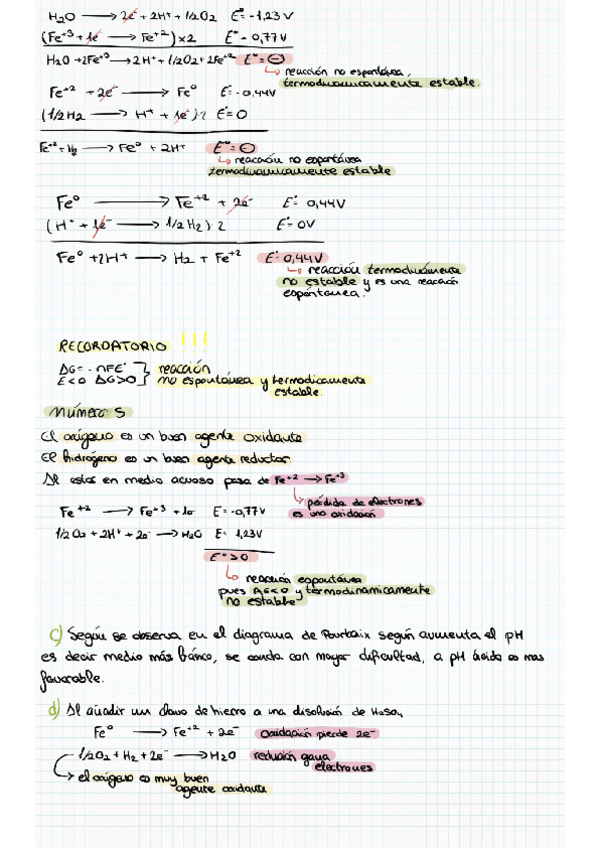 H₂O ⟶ 2e⁻ + 2H⁺ + 1/2O₂ E° = -1,23V
(Fe⁺³ + 1e⁻ ⟶ Fe⁺²) x2 E° - 0,77V
H₂O + 2Fe⁺³ ⟶ 2H⁺ + 1/2O₂ + 2Fe⁺² E° = ⊖
↳ reacción no espontánea,
termodinamicamente estable.
Fe⁺² + 2e⁻ ⟶ Fe⁰ E° = -0,44V
(1/2H₂ ⟶ H⁺ + 1e⁻)·2 E° = 0
Fe⁺² + H₂ ⟶ Fe⁰ + 2H⁺ E° = ⊖
↳ reacción no espontánea
termodinamicamente estable
Fe⁰ ⟶ Fe⁺² + 2e⁻ E° = 0,44V
(H⁺ + 1e⁻ ⟶ 1/2H₂)·2 E° = 0V
Fe⁰ + 2H⁺ ⟶ H₂ + Fe⁺² E° = 0,44V
↳ reacción termodinámente
no estable y es una reacción
espontánea.
RECORDATORIO !!!
ΔG = -nFE° } reacción
E<0 ΔG>0 } no espontánea y termodicamente
estable.
número 5
El oxígeno es un buen agente oxidante
El hidrógeno es un buen agente reductor
Al estar en medio acuoso pasa de Fe⁺² ⟶ Fe⁺³
↳ pérdida de electrones
es una oxidación
Fe⁺² ⟶ Fe⁺³ + 1e⁻ E = -0,77V
1/2O₂ + 2H⁺ + 2e⁻ ⟶ H₂O E = 1,23V
E° > 0
↳ reacción espontánea
pues ΔG<0 y termodinamicamente
no estable
c) Según se observa en el diagrama de Pourbaix según aumenta el pH
es decir medio más básico, se oxida con mayor dificultad, a pH ácido es mas
favorable.
d) Al añadir un clavo de hierro a una disolución de H₂SO₄
Fe⁰ ⟶ Fe⁺² + 2e⁻ oxidación pierde 2e⁻
1/2O₂ + H₂ + 2e⁻ ⟶ H₂O redución gana
electrones
↳ el oxígeno es muy buen
agente oxidante